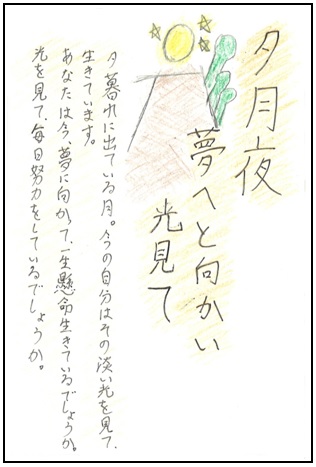 夕月夜
夢へと向かい
光見て
夕暮れに出ている月。今の自分はその淡い光を見て、
生きています。
あなたは今、夢に向かって、一生懸命生きているでしょうか。
光を見て、毎日努力をしているでしょうか。